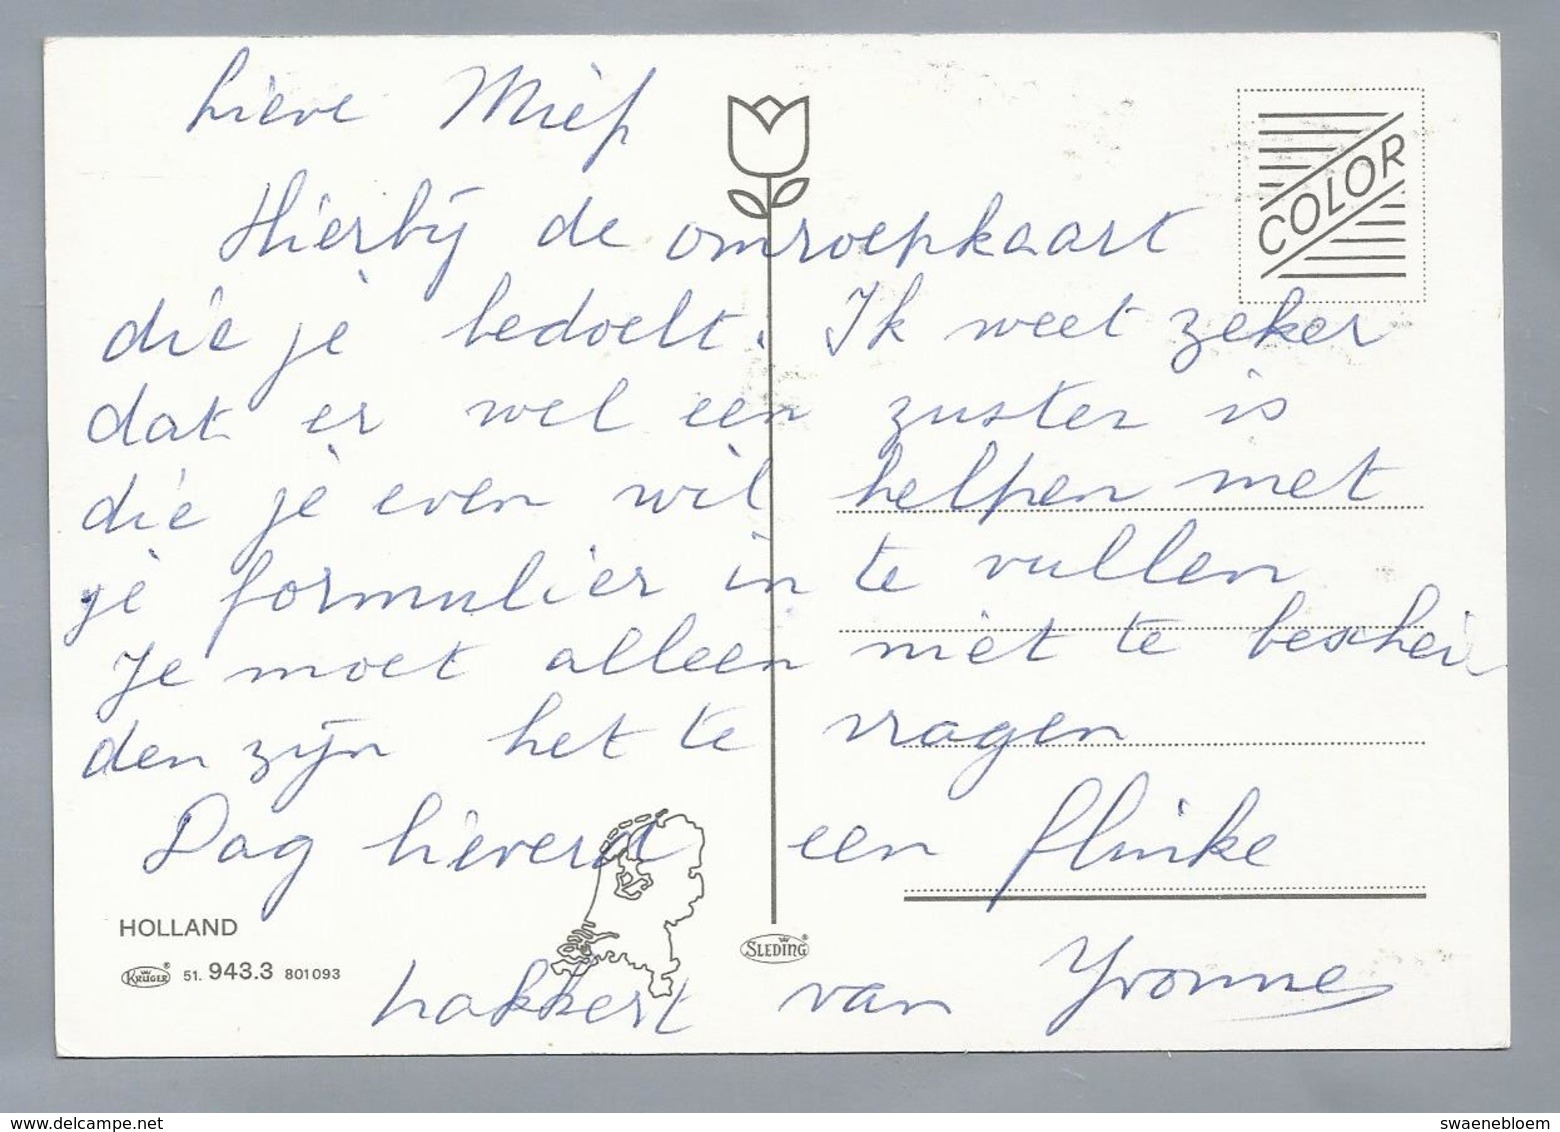 Lieve Miep
Hierbij de omroepkaart
die je bedoelt. Ik weet zeker
dat er wel een zuster is
die je even wil helpen met
je formulier in te vullen
Je moet alleen niet te beschei
den zijn het te vragen
Dag lieverd een flinke
hakkert van Yvonne
COLOR
HOLLAND
KRÜGER® 51. 943.3 801093
SLEDING®
www.delcampe.net
swaenebloem